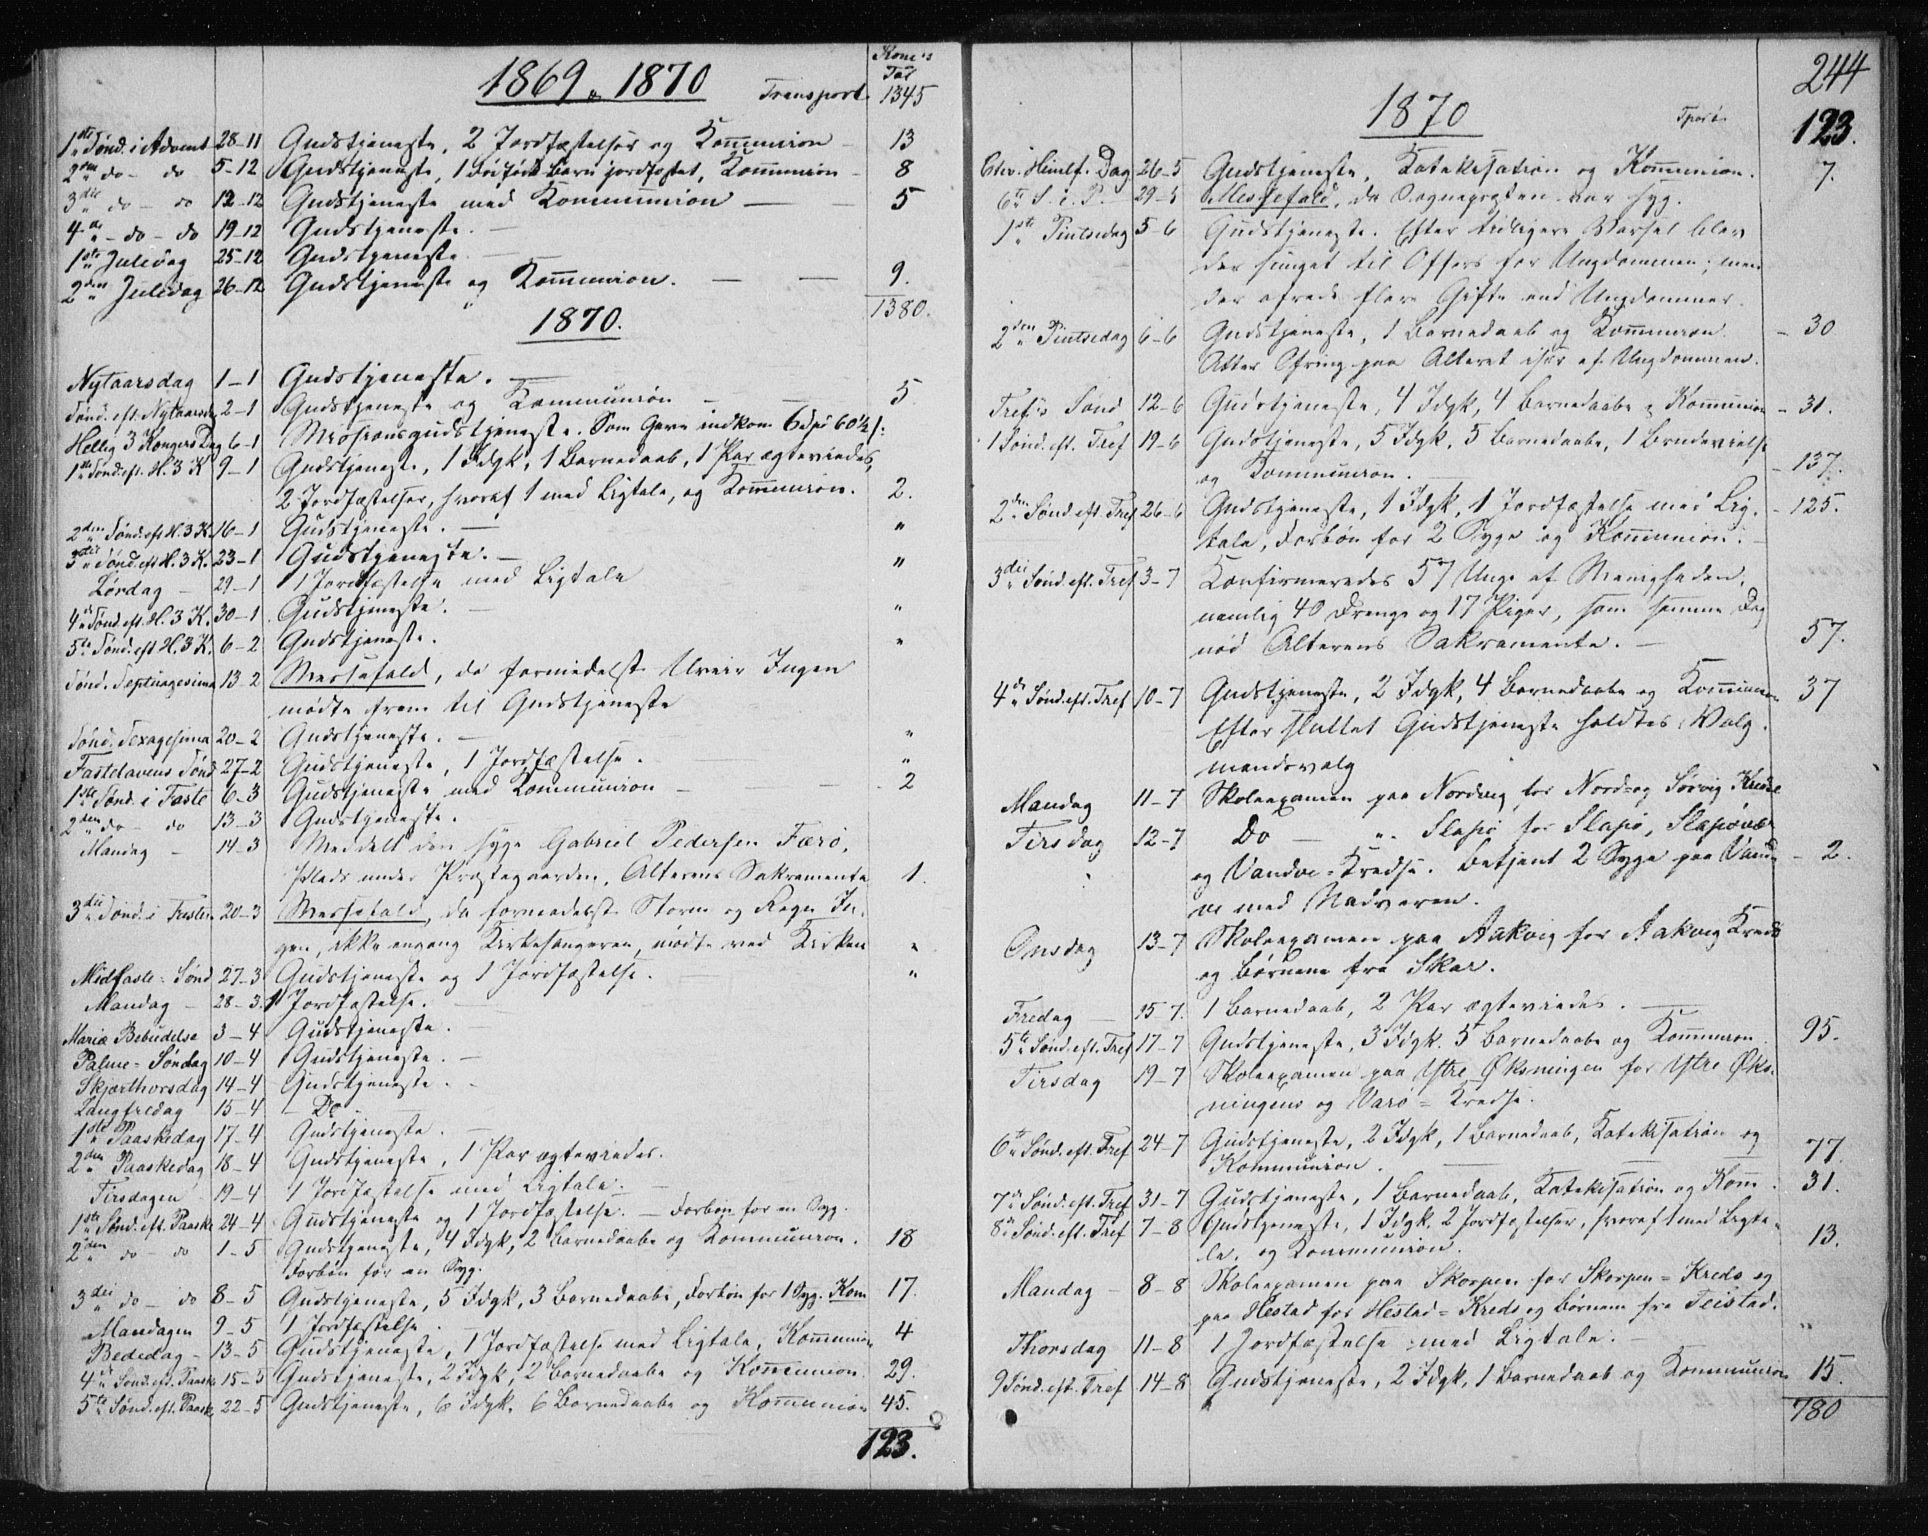 1869 „ 1870
Kom's
Tal
Transport 1345
1ste Sønd. i Advent 28-11 Gudstjeneste, 2 Jordfæstelser og Kommunion 13
2den do - do 5-12 Gudstjeneste, 1 Barn jordfæstet, Kommunion 8
3die do - do 12-12 Gudstjeneste med Kommunion 5
4de - do - do 19-12 Gudstjeneste.
1ste Juledag 25-12 Gudstjeneste
2den Juledag 26-12 Gudstjeneste og Kommunion. 9.
1380.
1870.
Nytaarsdag 1-1 Gudstjeneste.
Sønd. eft. Nytaarsdg 2-1 Gudstjeneste og Kommunion 5
Hellig 3 Kongers Dag 6-1 Missionsgudstjeneste. Som Gave indkom 6 Spd 60½ s:
1ste Sønd. eft. H. 3 K 9-1 Gudstjeneste, 1 Idgk, 1 Barnedaab, 1 Par ægteviedes,
2 Jordfæstelser, hvoraf 1 med Ligtale, og Kommunion. 2.
2den Sønd. eft H. 3 K. 16-1 Gudstjeneste. "
3die Sønd. eft H. 3 K. 23-1 Gudstjeneste. "
Lørdag 29-1 1 Jordfæstelse med Ligtale
4de Sønd. eft. H. 3 K. 30-1. Gudstjeneste. "
5te Sønd. eft H. 3 K. 6-2 Gudstjeneste. "
Sønd. Septuagesima 13-2 Messefald, da formedelst Uveir Ingen
mødte frem til Gudstjeneste
Sønd. Sexagesima 20-2 Gudstjeneste. "
Fastelavens Sønd 27-2 Gudstjeneste, 1 Jordfæstelse. "
1ste Sønd. i Faste 6-3 Gudstjeneste med Kommunion 2
2den do - do 13-3 Gudstjeneste.
Mandag 14-3 Meddelt den syge Gabriel Pedersen Færø,
Plads under Præstegaarden, Alterens Sakramente 1.
3die Sønd. i Fasten 20-3 Messefald, da formedelst Storm og Regn In-
gen, ikke engang Kirkesangeren, mødte ved Kirken "
Midfaste-Sønd 27-3 Gudstjeneste og 1 Jordfæstelse. "
Mandag 28-3. 1 Jordfæstelse.
Mariæ Bebudelse 3-4 Gudstjeneste.
Palme-Søndag 10-4 Gudstjeneste.
Skjærthorsdag 14-4 Gudstjeneste.
Langfredag 15-4 - Do -
1ste Paaskedag 17-4 Gudstjeneste.
2den Paaskedag 18-4 Gudstjeneste, 1 Par ægteviedes.
Tirsdagen 19-4 1 Jordfæstelse med Ligtale.
1ste Sønd. eft. Paaske 24-4 Gudstjeneste og 1 Jordfæstelse. - Forbøn for en Syg.
2den do - do 1-5 Gudstjeneste, 4 Idgk, 2 Barnedaabe og Kommunion. 18
Forbøn for en Syg.
3die do - do 8-5 Gudstjeneste, 5 Idgk, 3 Barnedaabe, Forbøn for 1 Syg. Kom 17.
Mandagen 9-5 1 Jordfæstelse.
Bededag - 13-5 Gudstjeneste, 1 Jordfæstelse med Ligtale, Kommunion 4
4de Sønd. eft. Paaske 15-5 Gudstjeneste, 2 Idgk, 2 Barnedaabe og Kommunion 29.
5te Sønd. eft. Paaske 22-5 Gudstjeneste, 6 Idgk, 6 Barnedaabe og Kommunion 45.
123.
244
1870
Tport. 123.
Chr. Himlf. Dag 26-5 Gudstjeneste, Katekisation og Kommunion. 7.
6te S. e. P. 29-5 Messefald, da Sognepræsten var syg.
1ste Pintsedag 5-6 Gudstjeneste. Efter tidligere Varsel blev
der sunget til Offers for Ungdommen; men
der ofrede flere Gifte end Ungdommer.
2den Pintsedag 6-6 Gudstjeneste, 1 Barnedaab og Kommunion - 30
Atter Ofring paa Alteret især af Ungdommen.
Tref's Sønd 12-6 Gudstjeneste, 4 Idgk, 4 Barnedaabe & Kommunion - 31.
1 Sønd. eft. Tref 19-6 Gudstjeneste, 5 Idgk. 5 Barnedaabe, 1 Brudevielse
og Kommunion. - 137.
2den Sønd. eft. Tref 26-6 Gudstjeneste, 1 Idgk, 1 Jordfæstelse med Lig- - 125.
tale, Forbøn for 2 Syge og Kommunion.
3die Sønd. eft. Tref 3-7 Konfirmeredes 57 Unge af Menigheden,
nemlig 40 Drenge og 17 Piger, som samme Dag
nød Alterens Sakramente. 57.
4de Sønd. eft. Tref 10-7 Gudstjeneste, 2 Idgk, 4 Barnedaabe og Kommunion 37
Efter sluttet Gudstjeneste holdtes Valg-
mandsvalg
Mandag 11-7 Skoleexamen paa Nordvig for Nord- og Sørvig Kredse
Tirsdag 12-7 Do - " Slapø for Slapø, Slapøvær
og Vandve-Kredse. Betjent 2 Syge paa Vand- - 2.
ve med Nadveren.
Onsdag 13-7 Skoleexamen paa Aakvig for Aakvig Kreds
og Børnene fra Skar.
Fredag 15-7. 1 Barnedaab, 2 Par ægteviedes.
5te Sønd. eft. Tref 17-7 Gudstjeneste, 3 Idgk. 5 Barnedaabe og Kommunion 95.
Tirsdag 19-7 Skoleexamen paa Ytre Øksningen for Ytre Øks-
ningens og Varø-Kredse.
6te Sønd. eft. Tref 24-7 Gudstjeneste, 2 Idgk, 1 Barnedaab, Katekisation og
Kommunion. 77.
7de Sønd. eft. Tref 31-7 Gudstjeneste, 1 Barnedaab, Katekisation og Kom. 31.
8de Sønd. eft. Tref 7-8 Gudstjeneste, 1 Idgk, 2 Jordfæstelser, hvoraf 1 med Ligta-
le, og Kommunion. 13.
Mandag - 8-8 Skoleexamen paa Skorpen for Skorpen-Kreds og
paa Hestad for Hestad-Kreds og Børnene fra Teistad.
Thorsdag 11-8 1 Jordfæstelse med Ligtale. "
9 Sønd. eft. Tref 14-8 Gudstjeneste, 2 Idgk, 1 Barnedaab og Kommunion 15.
780